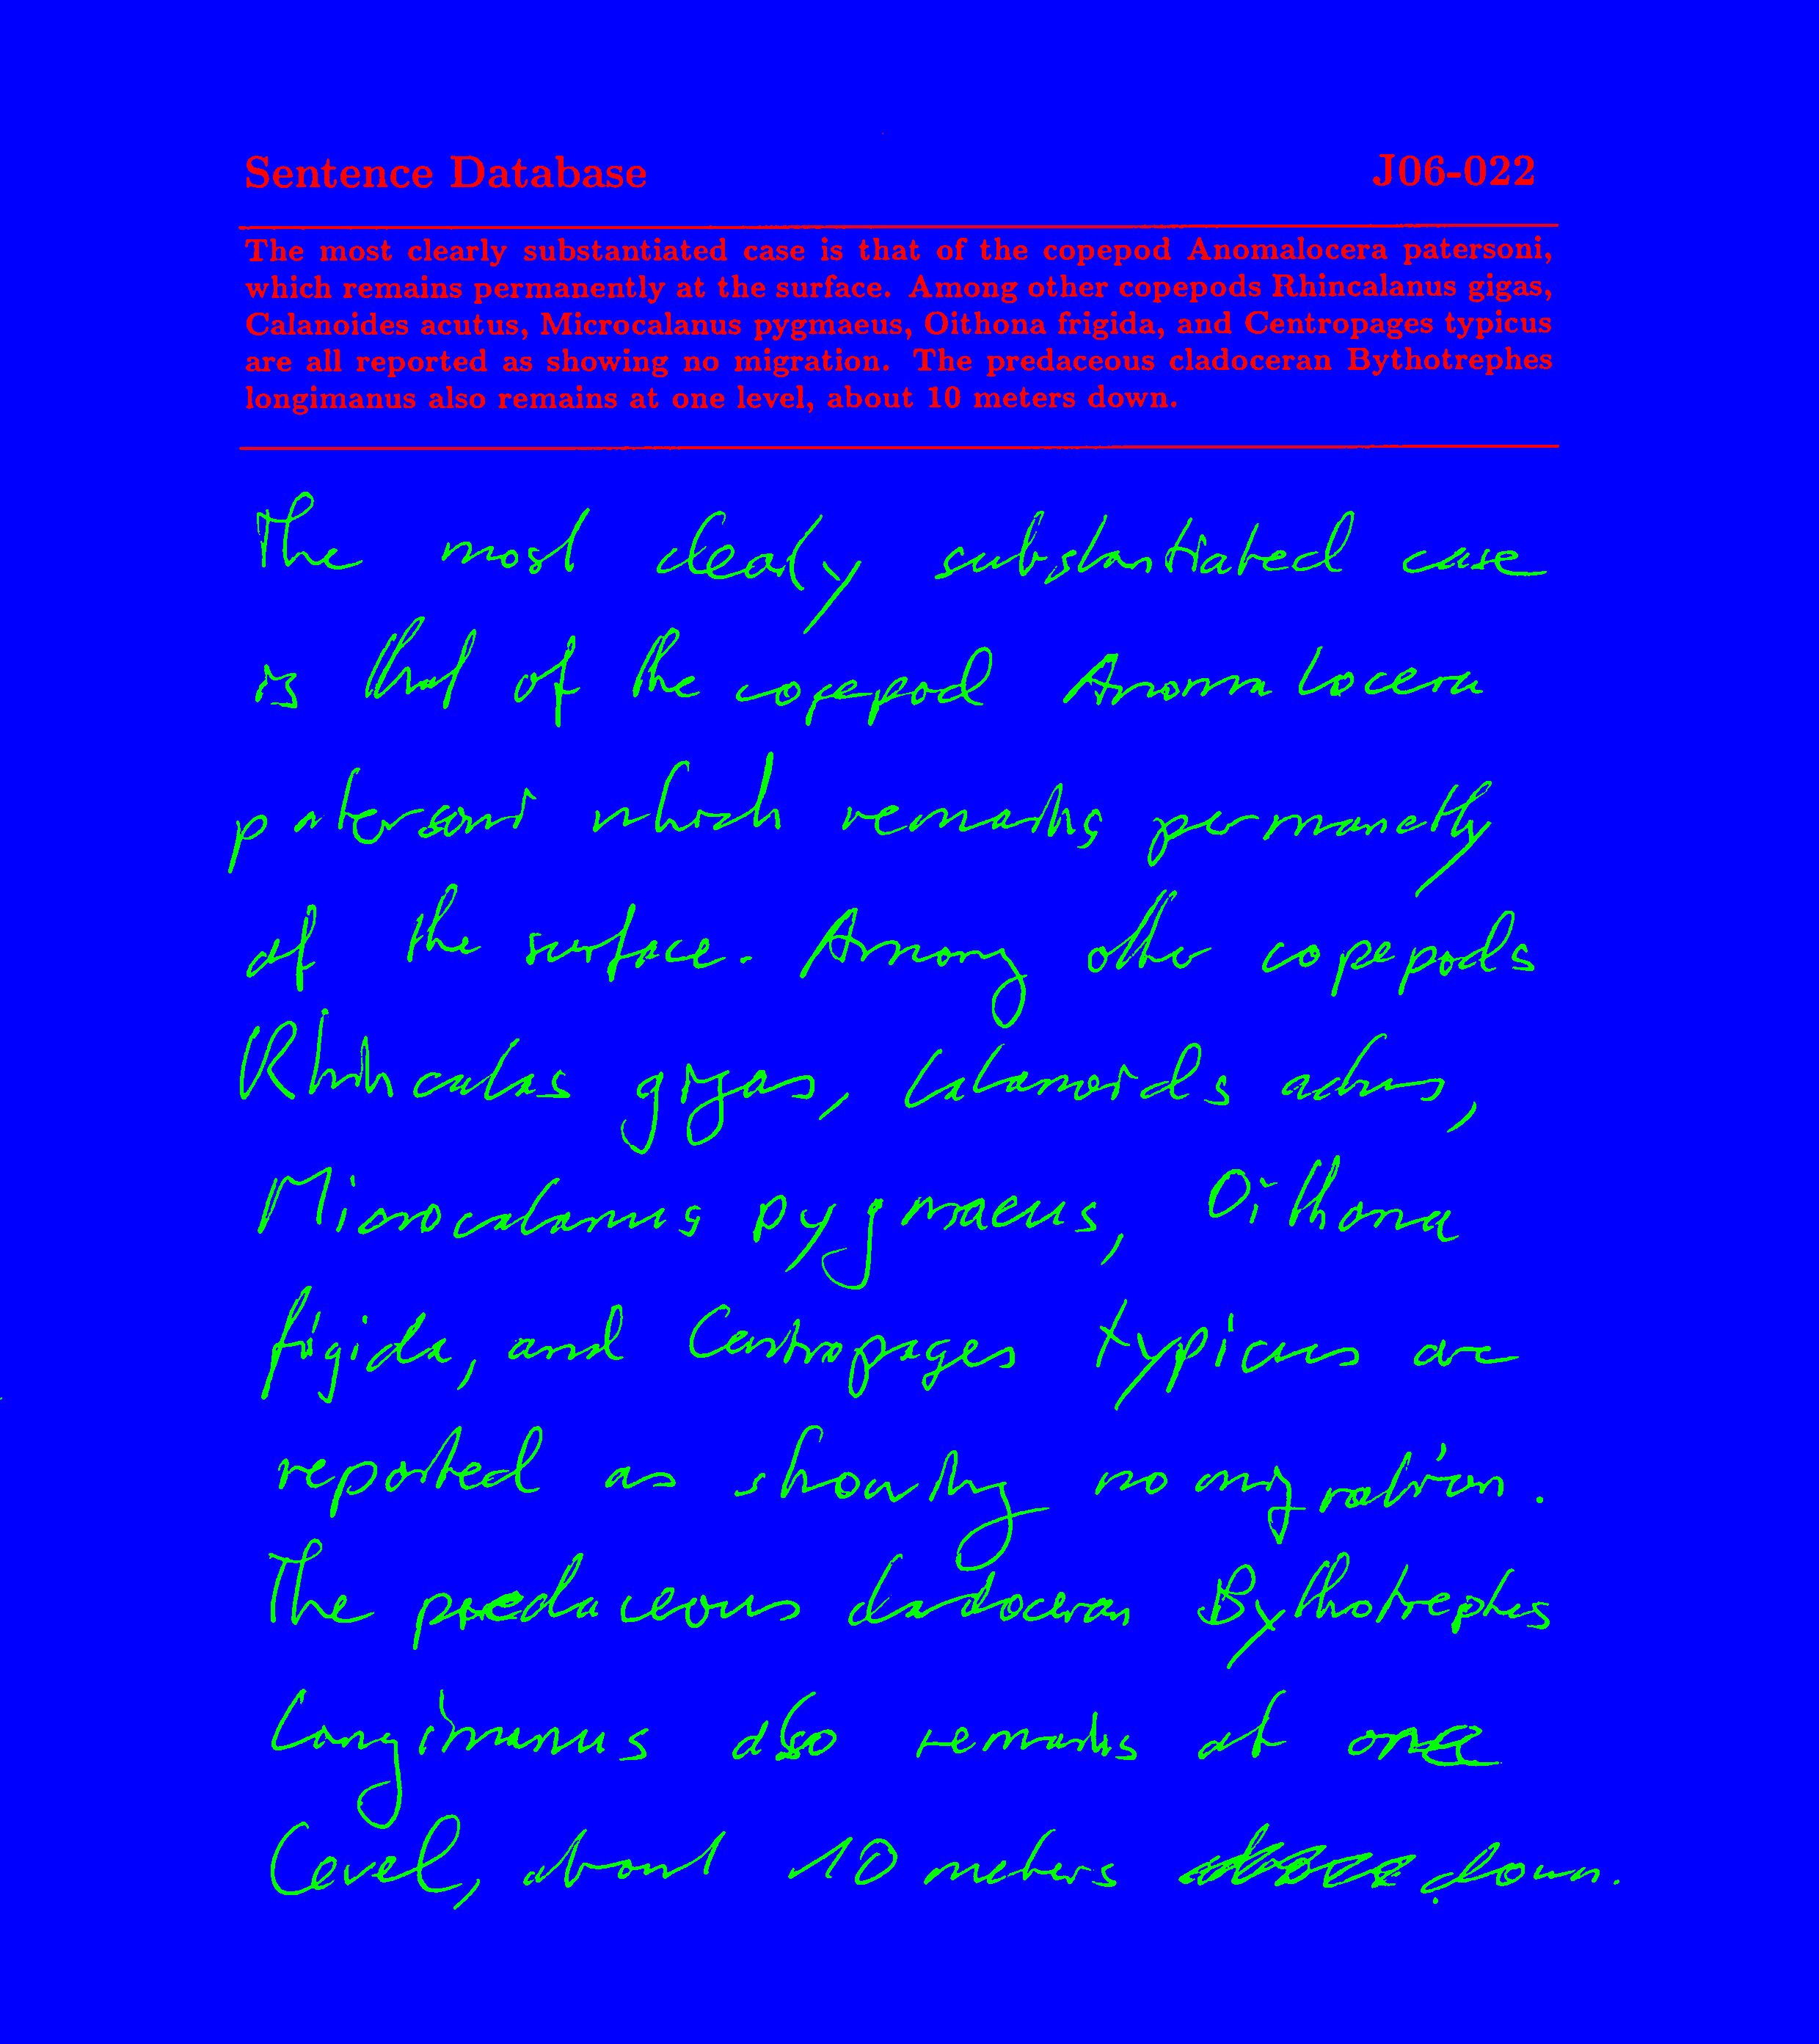 Sentence Database J06-022
The most clearly substantiated case is that of the copepod Anomalocera patersoni,
which remains permanently at the surface. Among other copepods Rhincalanus gigas,
Calanoides acutus, Microcalanus pygmaeus, Oithona frigida, and Centropages typicus
are all reported as showing no migration. The predaceous cladoceran Bythotrephes
longimanus also remains at one level, about 10 meters down.
The most clearly substantiated case
is that of the copepod Anomalocera
patersoni which remains permanetly
at the surface. Among other copepods
Rhincalas gigas, Calanoids acutus,
Microcalanus pygmaeus, Oithona
frigida, and Centropages typicus are
reported as showing no migration.
The predaceous cladoceran Bythotrephes
longimanus also remains at one
level, about 10 meters down.